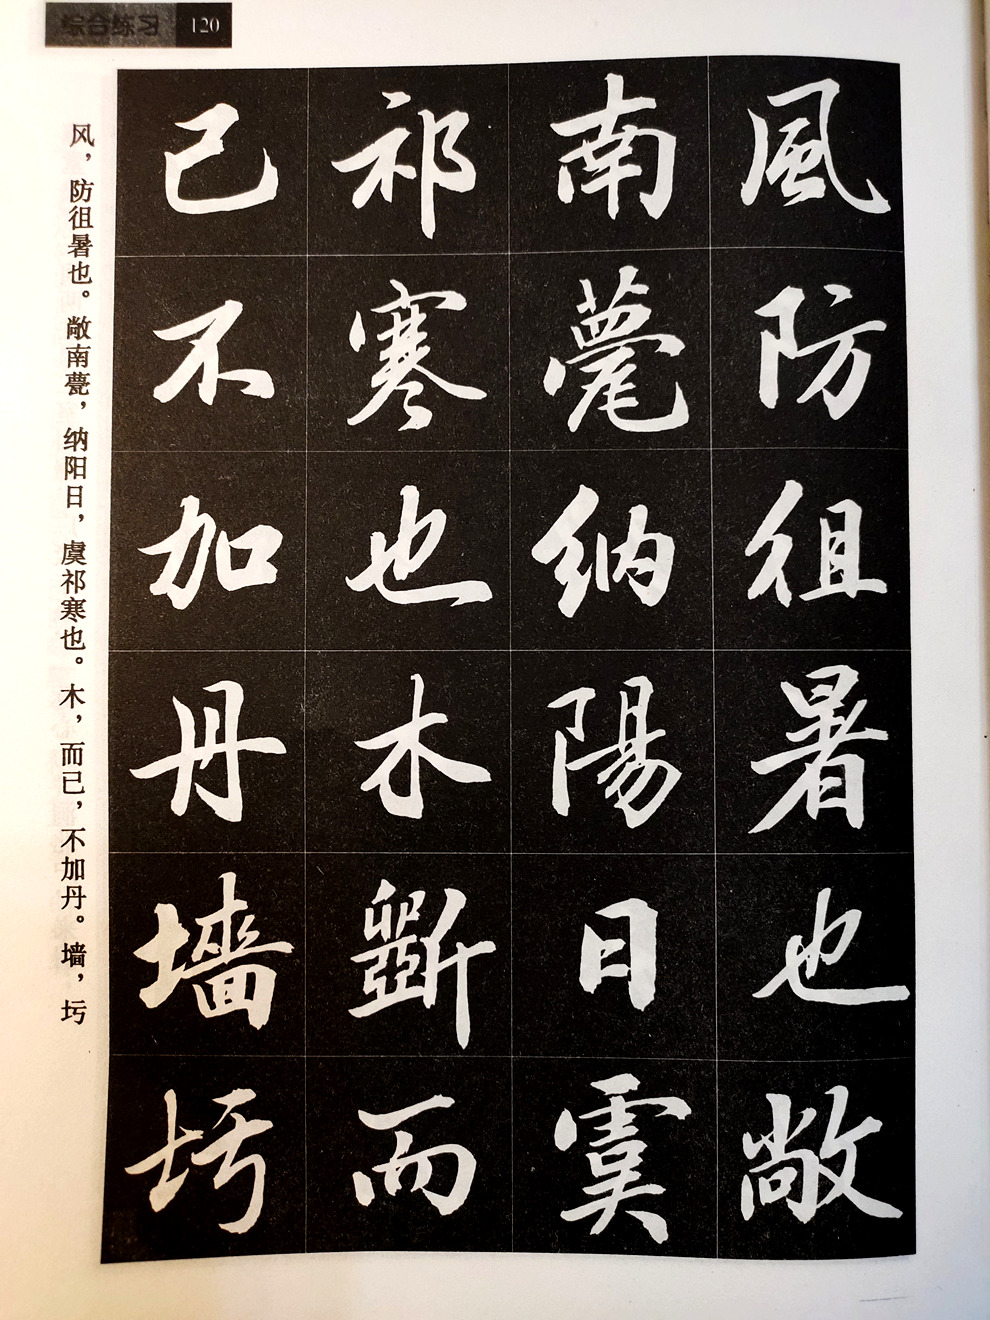 综合练习 120
風防徂暑也敞
南甍納陽日虞
祁寒也木斵而
已不加丹墻圬
风，防徂暑也。敞南甍，纳阳日，虞祁寒也。木，而已，不加丹。墙，圬